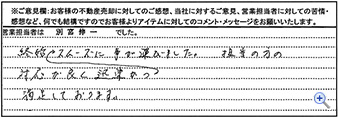 ※ご意見欄：お客様の不動産売却に対してのご感想、当社に対するご意見、営業担当者に対しての苦情・
感想など、何でも結構ですのでお客様よりアイテムに対してのコメント・メッセージをお願いいたします。
営業担当者は 別宮修一 でした。
終始スムーズに事が運びました。 担当の方の
対応が良く 誠実かつ
満足しております。